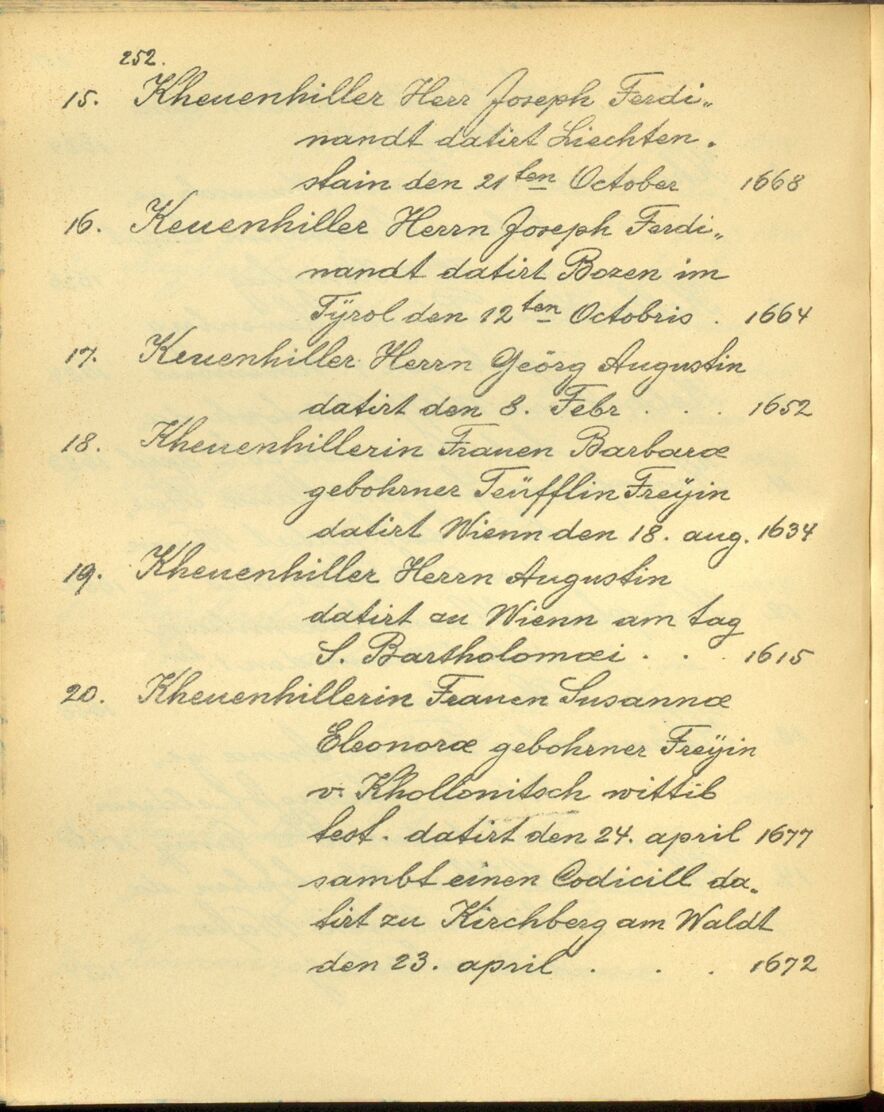 252.
15. Kheuenhiller Herr Joseph Ferdi„
nandt datirt Liechten„
stain den 21ten October 1668
16. Keuenhiller Herrn Joseph Ferdi„
nandt datirt Bozen im
Tÿrol den 12ten Octobris . 1664
17. Keuenhiller Herrn Geörg Augustin
datirt den 8. Febr . . . 1652
18. Kheuenhillerin Frauen Barbaræ
gebohrner Teüfflin Freÿin
datirt Wienn den 18. aug. 1634
19. Kheuenhiller Herrn Augustin
datirt zu Wienn am tag
S. Bartholomæi . . . 1615
20. Kheuenhillerin Frauen Susannæ
Eleonoræ gebohrner Freÿin
v. Khollonitsch wittib
test. datirt den 24. april 1677
sambt einen Codicill da„
tirt zu Kirchberg am Waldt
den 23. april . . . 1672